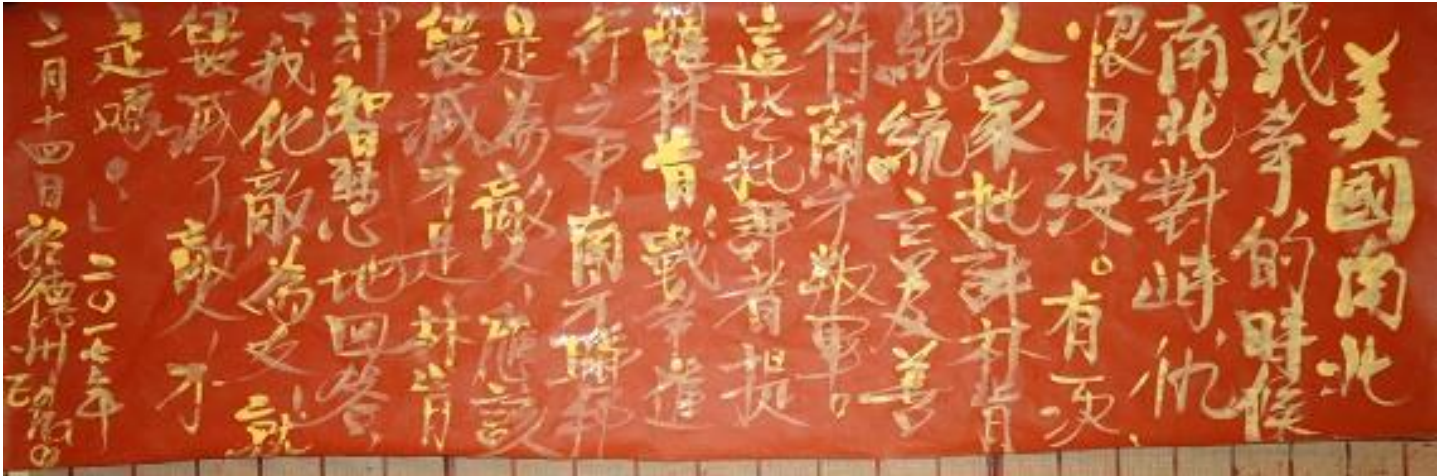 美國南北
戰爭的時候
南北對峙,仇
恨日深。有次,
人家批評林肯
總統友善
待南方叛軍。
這些批評者提
醒林肯:戰爭進
行之中,南方聯邦
是為敵人,應該
毀滅才是 林肯
卻智慧地回答,
「我化敵為友,就
毀滅了敵人 才
是嗎?」二〇一七年
二月十四日於德州